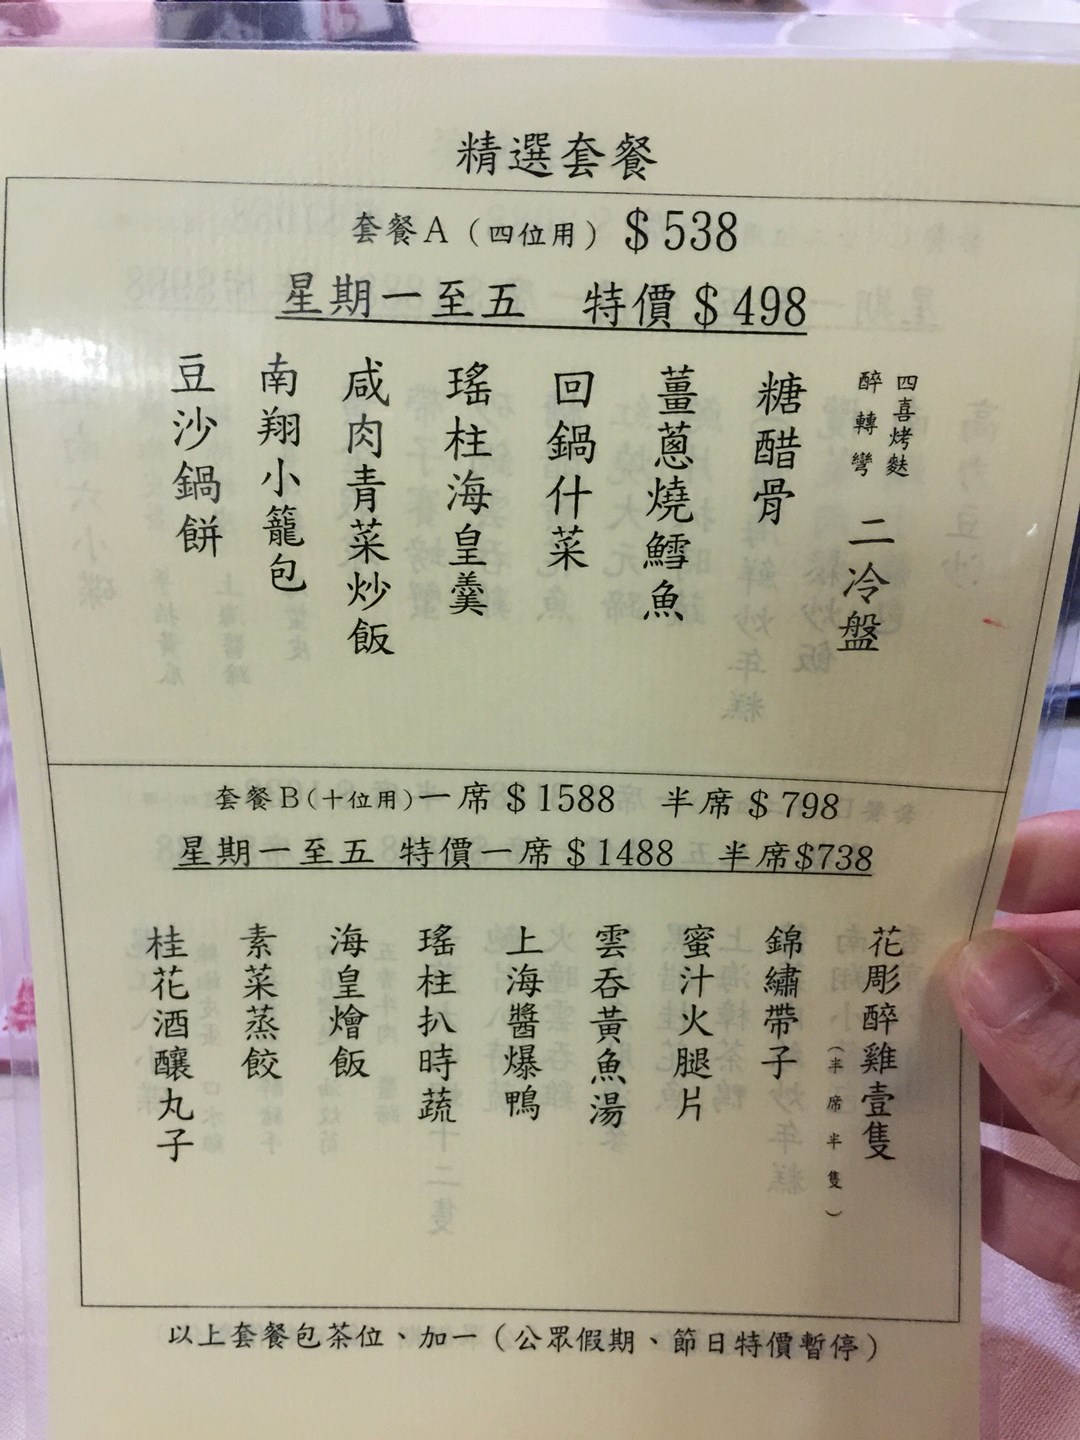 精選套餐
套餐A（四位用）$538
星期一至五 特價$498
四喜烤麩
醉轉彎
二冷盤
糖醋骨
薑蔥燒鱈魚
回鍋什菜
瑤柱海皇羹
咸肉青菜炒飯
南翔小籠包
豆沙鍋餅
套餐B（十位用）一席$1588 半席$798
星期一至五 特價一席$1488 半席$738
花彫醉雞壹隻
（半席半隻）
錦繡帶子
蜜汁火腿片
雲吞黃魚湯
上海醬爆鴨
瑤柱扒時蔬
海皇燴飯
素菜蒸餃
桂花酒釀丸子
以上套餐包茶位、加一（公眾假期、節日特價暫停）